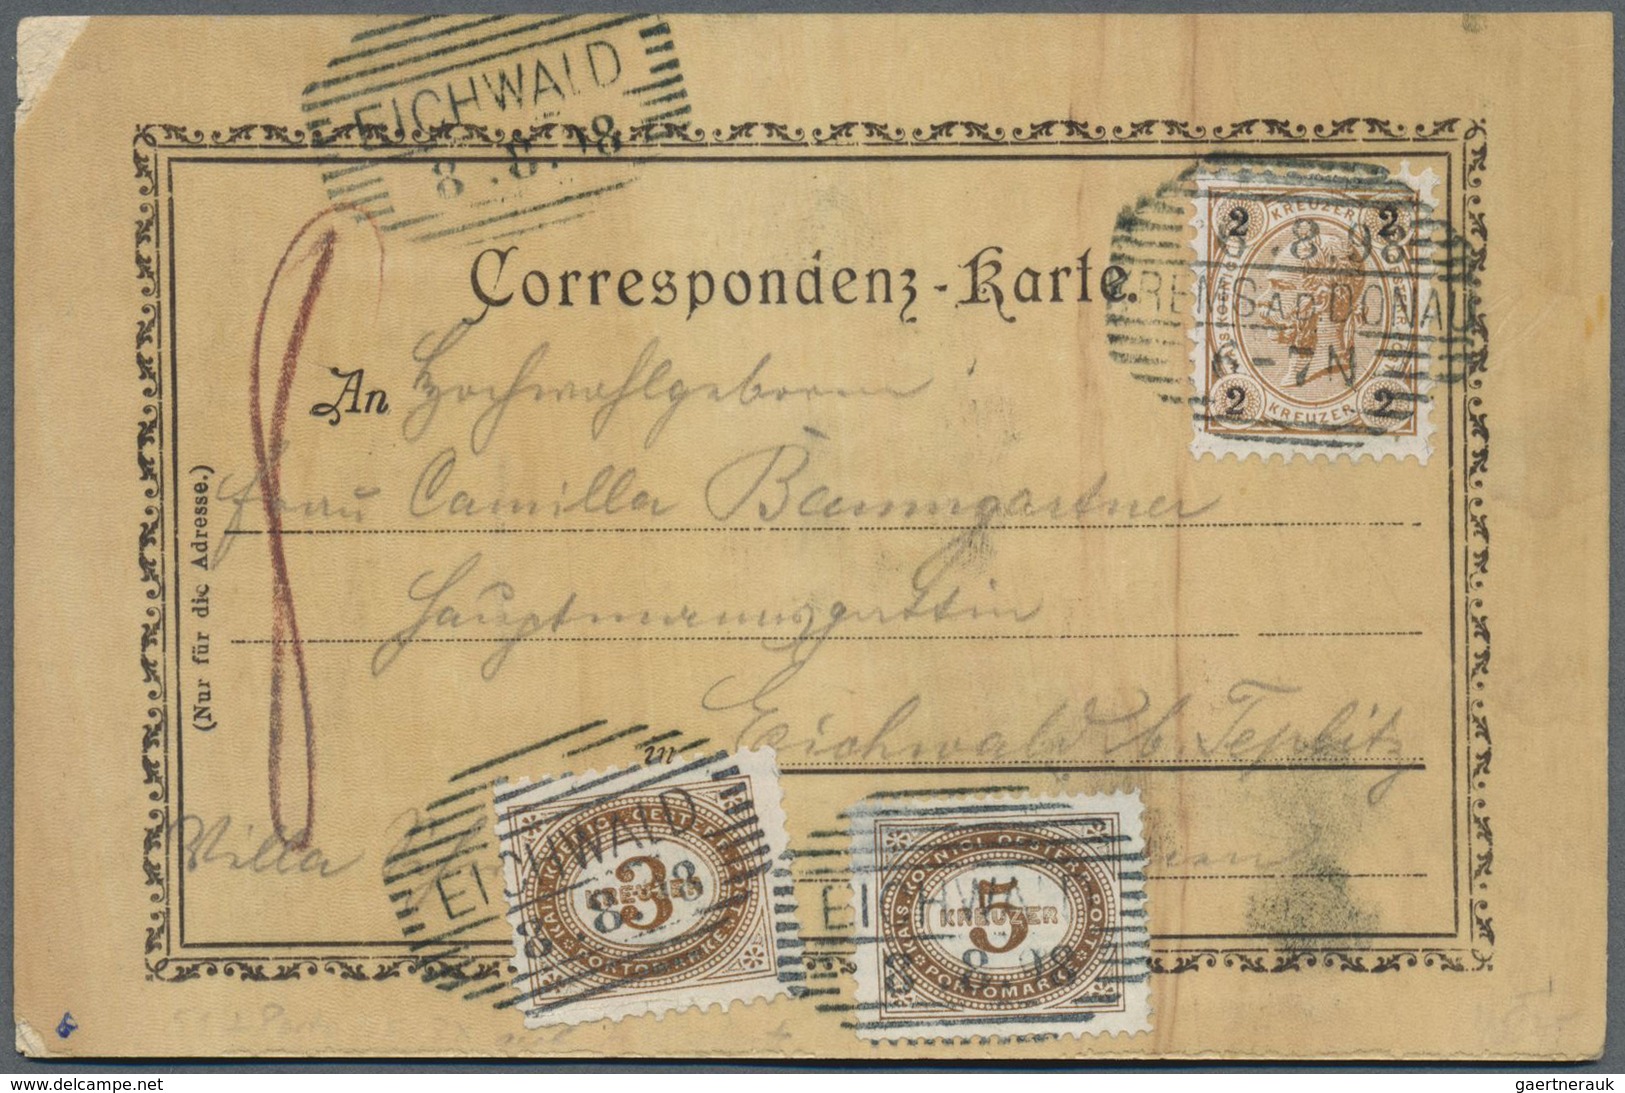 EICHWALD
8.8.98
Correspondenz-Karte.
2 KREUZER 2
6.8.98
KREMS A.D. DONAU
6-7N
2 KREUZER 2
An Hochwohlgeboren
Frau Camilla Baumgartner
Hauptmannsgattin
(Nur für die Adresse.)
in Eichwald b. Teplitz
Villa
KAIS. KÖNIGL. OESTERR. POST.
3
KREUZER
PORTOMARKE
EICHWALD
8.8.98
KAIS. KÖNIGL. OESTERR. POST.
5
KREUZER
PORTOMARKE
EICHWALD
8.8.98
www.delcampe.net
gaertnerauk